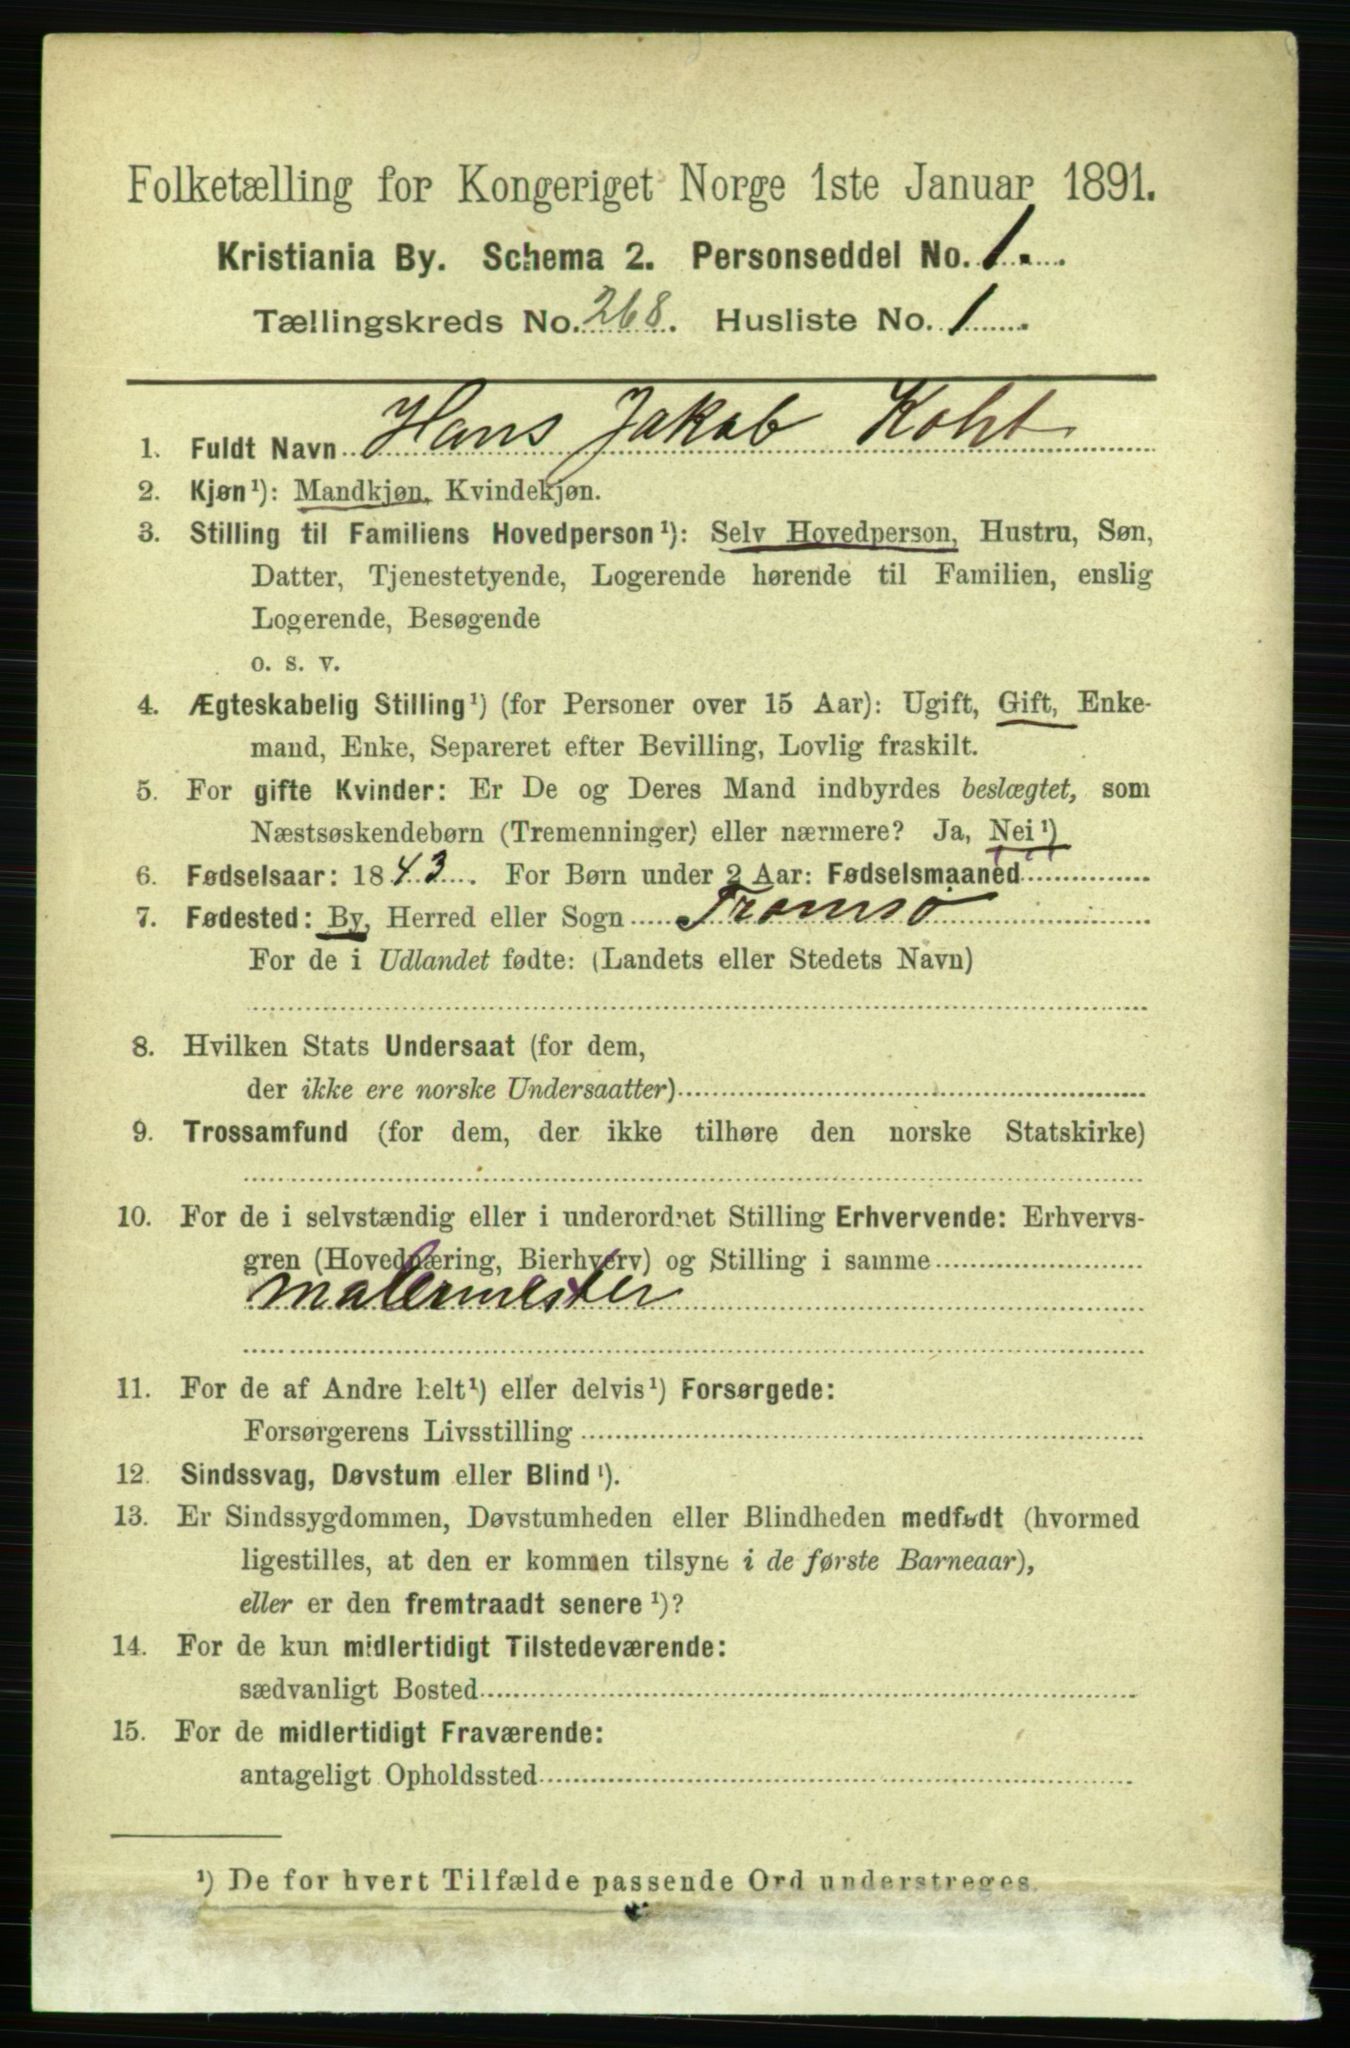 Folketælling for Kongeriget Norge 1ste Januar 1891.
Kristiania By. Schema 2. Personseddel No. 1.
Tællingskreds No. 268. Husliste No. 1
1. Fuldt Navn Hans Jakob Koht
2. Kjøn¹): Mandkjøn, Kvindekjøn.
3. Stilling til Familiens Hovedperson¹): Selv Hovedperson, Hustru, Søn,
Datter, Tjenestetyende, Logerende hørende til Familien, enslig
Logerende, Besøgende
o. s. v.
4. Ægteskabelig Stilling¹) (for Personer over 15 Aar): Ugift, Gift, Enke-
mand, Enke, Separeret efter Bevilling, Lovlig fraskilt.
5. For gifte Kvinder: Er De og Deres Mand indbyrdes beslægtet, som
Næstsøskendebørn (Tremenninger) eller nærmere? Ja, Nei¹)
6. Fødselsaar: 1843. For Børn under 2 Aar: Fødselsmaaned
7. Fødested: By, Herred eller Sogn Tromsø
For de i Udlandet fødte: (Landets eller Stedets Navn)
8. Hvilken Stats Undersaat (for dem,
der ikke ere norske Undersaatter)
9. Trossamfund (for dem, der ikke tilhøre den norske Statskirke)
10. For de i selvstændig eller i underordnet Stilling Erhvervende: Erhvervs-
gren (Hovednæring, Bierhverv) og Stilling i samme
malermester
11. For de af Andre helt¹) eller delvis¹) Forsørgede:
Forsørgerens Livsstilling
12. Sindssvag, Døvstum eller Blind¹).
13. Er Sindssygdommen, Døvstumheden eller Blindheden medfødt (hvormed
ligestilles, at den er kommen tilsyne i de første Barneaar),
eller er den fremtraadt senere¹)?
14. For de kun midlertidigt Tilstedeværende:
sædvanligt Bosted
15. For de midlertidigt Fraværende:
antageligt Opholdssted
¹) De for hvert Tilfælde passende Ord understreges.